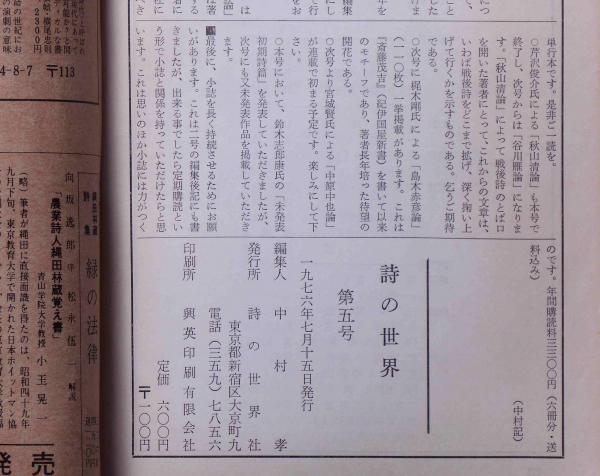 単行本です。是非ご一読を。
○芹沢俊介氏による「秋山清論」も本号で
終了し、次号からは「谷川雁論」になりま
す。「秋山清論」によって戦後詩のとば口
を開いた著者にとって、これからの文章は、
いわば戦後詩をどこまで拡げ、深く掬い上
げて行くかを示すものである。乞うご期待
である。
○次号に梶木剛氏による「島木赤彦論」
(一一〇枚)一挙掲載があります。これは
『斎藤茂吉』(紀伊国屋新書)を書いて以来
のモチーフであり、著者長年培った待望の
開花である。
○次号より宮城賢氏による「中原中也論」
が連載で初まる予定です。楽しみにして下
さい。
○本号において、鈴木志郎康氏の「未発表
初期詩篇」を発表していただきましたが、
次号にも又未発表作品を掲載していただき
ます。
最後に、小誌を長く持続させるためにお願
いがあります。これは二号の編集後記にも書
きましたが、出来る事でしたら定期購読とい
う形で小誌と関係を持っていただけたらと思
います。これは思いのほか小誌には力がつく
のです。年間購読料三三〇〇円(六冊分・送
料込み)
(中村記)
詩の世界
第五号
一九七六年七月十五日発行
編集人 中村 孝
発行所 詩の世界社
東京都新宿区大京町九
電話(三五九)七八五六
印刷所 興英印刷有限会社
定価 六〇〇円
〒一〇〇円
2300円
4-8-7 〒113
緑の法律
向坂逸郎 序 松永伍一 解説
「農業詩人縄田林蔵覚え書」
青山学院大学教授 小玉晃一
(略)筆者が縄田に直接面識を得たのは、昭和四十九年
九月下旬、東京教育大学で開かれた日本ホイットマン協
発売